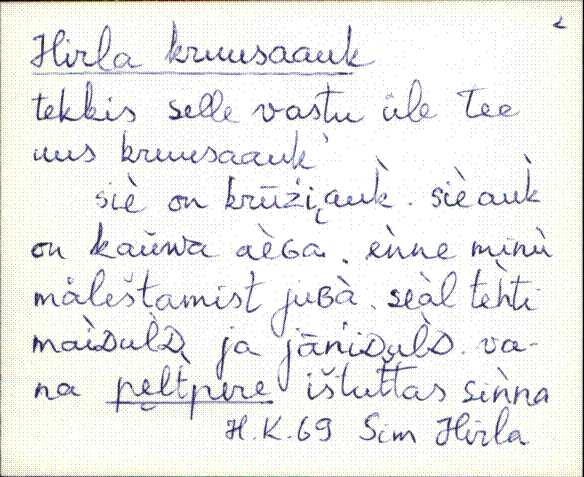 Hirla kruusaauk
tekkis selle vastu üle tee
uus kruusaauk
siè on krūži̮auk̀. sièauk̀
on kaùwa aèɢa. ènne minù
màleštamist juʙà. seàl tehti
maìᴅulᴅ ja jāǹiᴅulᴅ. va-
na pelt̀pere ištuttas siǹna
H.K.69 Sim Hirla